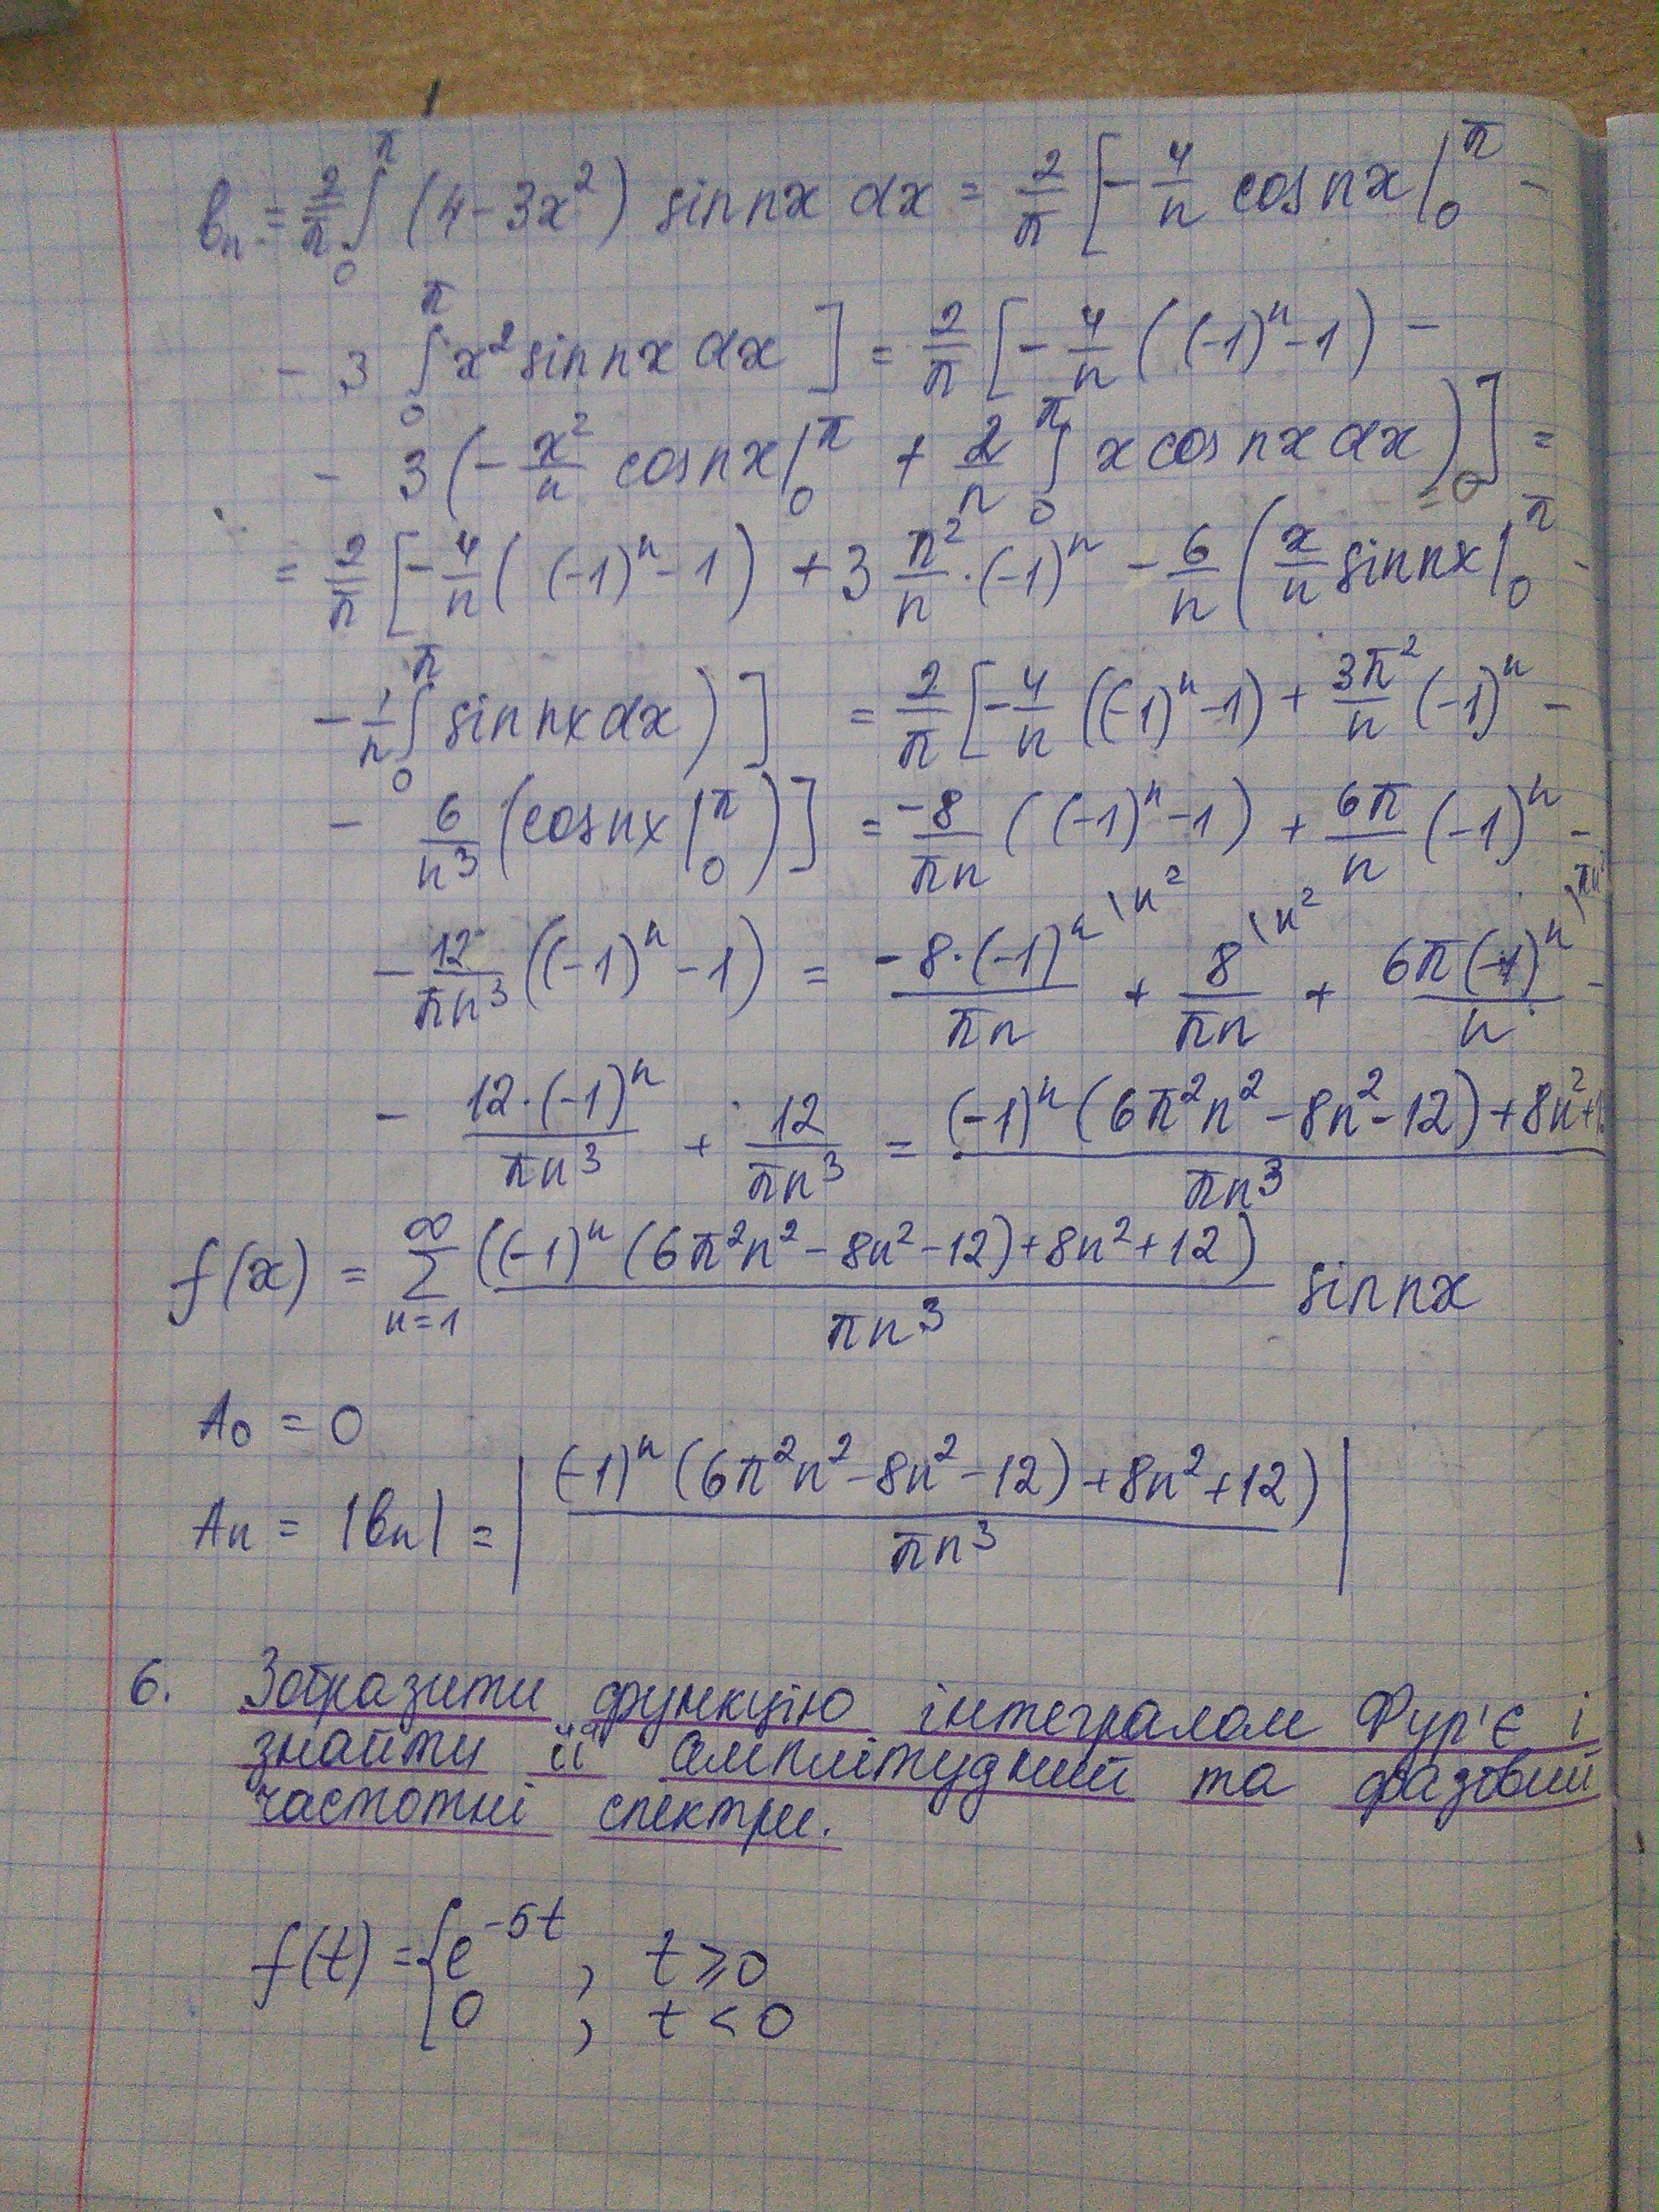 bₙ = 2/π ∫₀^π (4-3x²) sin nx dx = 2/π [-4/n cos nx |₀^π -
- 3 ∫₀^π x² sin nx dx ] = 2/π [-4/n ((-1)ⁿ-1) -
- 3 (-x²/n cos nx |₀^π + 2/n ∫₀^π x cos nx dx )] =
= 2/π [-4/n ((-1)ⁿ-1) + 3 π²/n · (-1)ⁿ - 6/n (x/n sin nx |₀^π -
- 1/n ∫₀^π sin nx dx )] = 2/π [-4/n ((-1)ⁿ-1) + 3π²/n (-1)ⁿ -
- 6/n³ (cos nx |₀^π )] = -8/πn ((-1)ⁿ-1) + 6π/n (-1)ⁿ -
- 12/πn³ ((-1)ⁿ-1) = -8·(-1)ⁿ\n² / πn + 8\n² / πn + 6π(-1)ⁿ / n -
- 12·(-1)ⁿ/πn³ + 12/πn³ = (-1)ⁿ (6π²n²-8n²-12)+8n²+ / πn³
f(x) = ∑ₙ₌₁^∞ ((-1)ⁿ (6π²n²-8n²-12)+8n²+12) / πn³ sin nx
A₀ = 0
Aₙ = |bₙ| = | (-1)ⁿ (6π²n²-8n²-12)+8n²+12) / πn³ |
6. Зобразити функцію інтегралом Фур'є і
знайти її амплітудний та фазовий
частотні спектри.
f(t) = { e^(-5t) , t ≥ 0
0 , t < 0